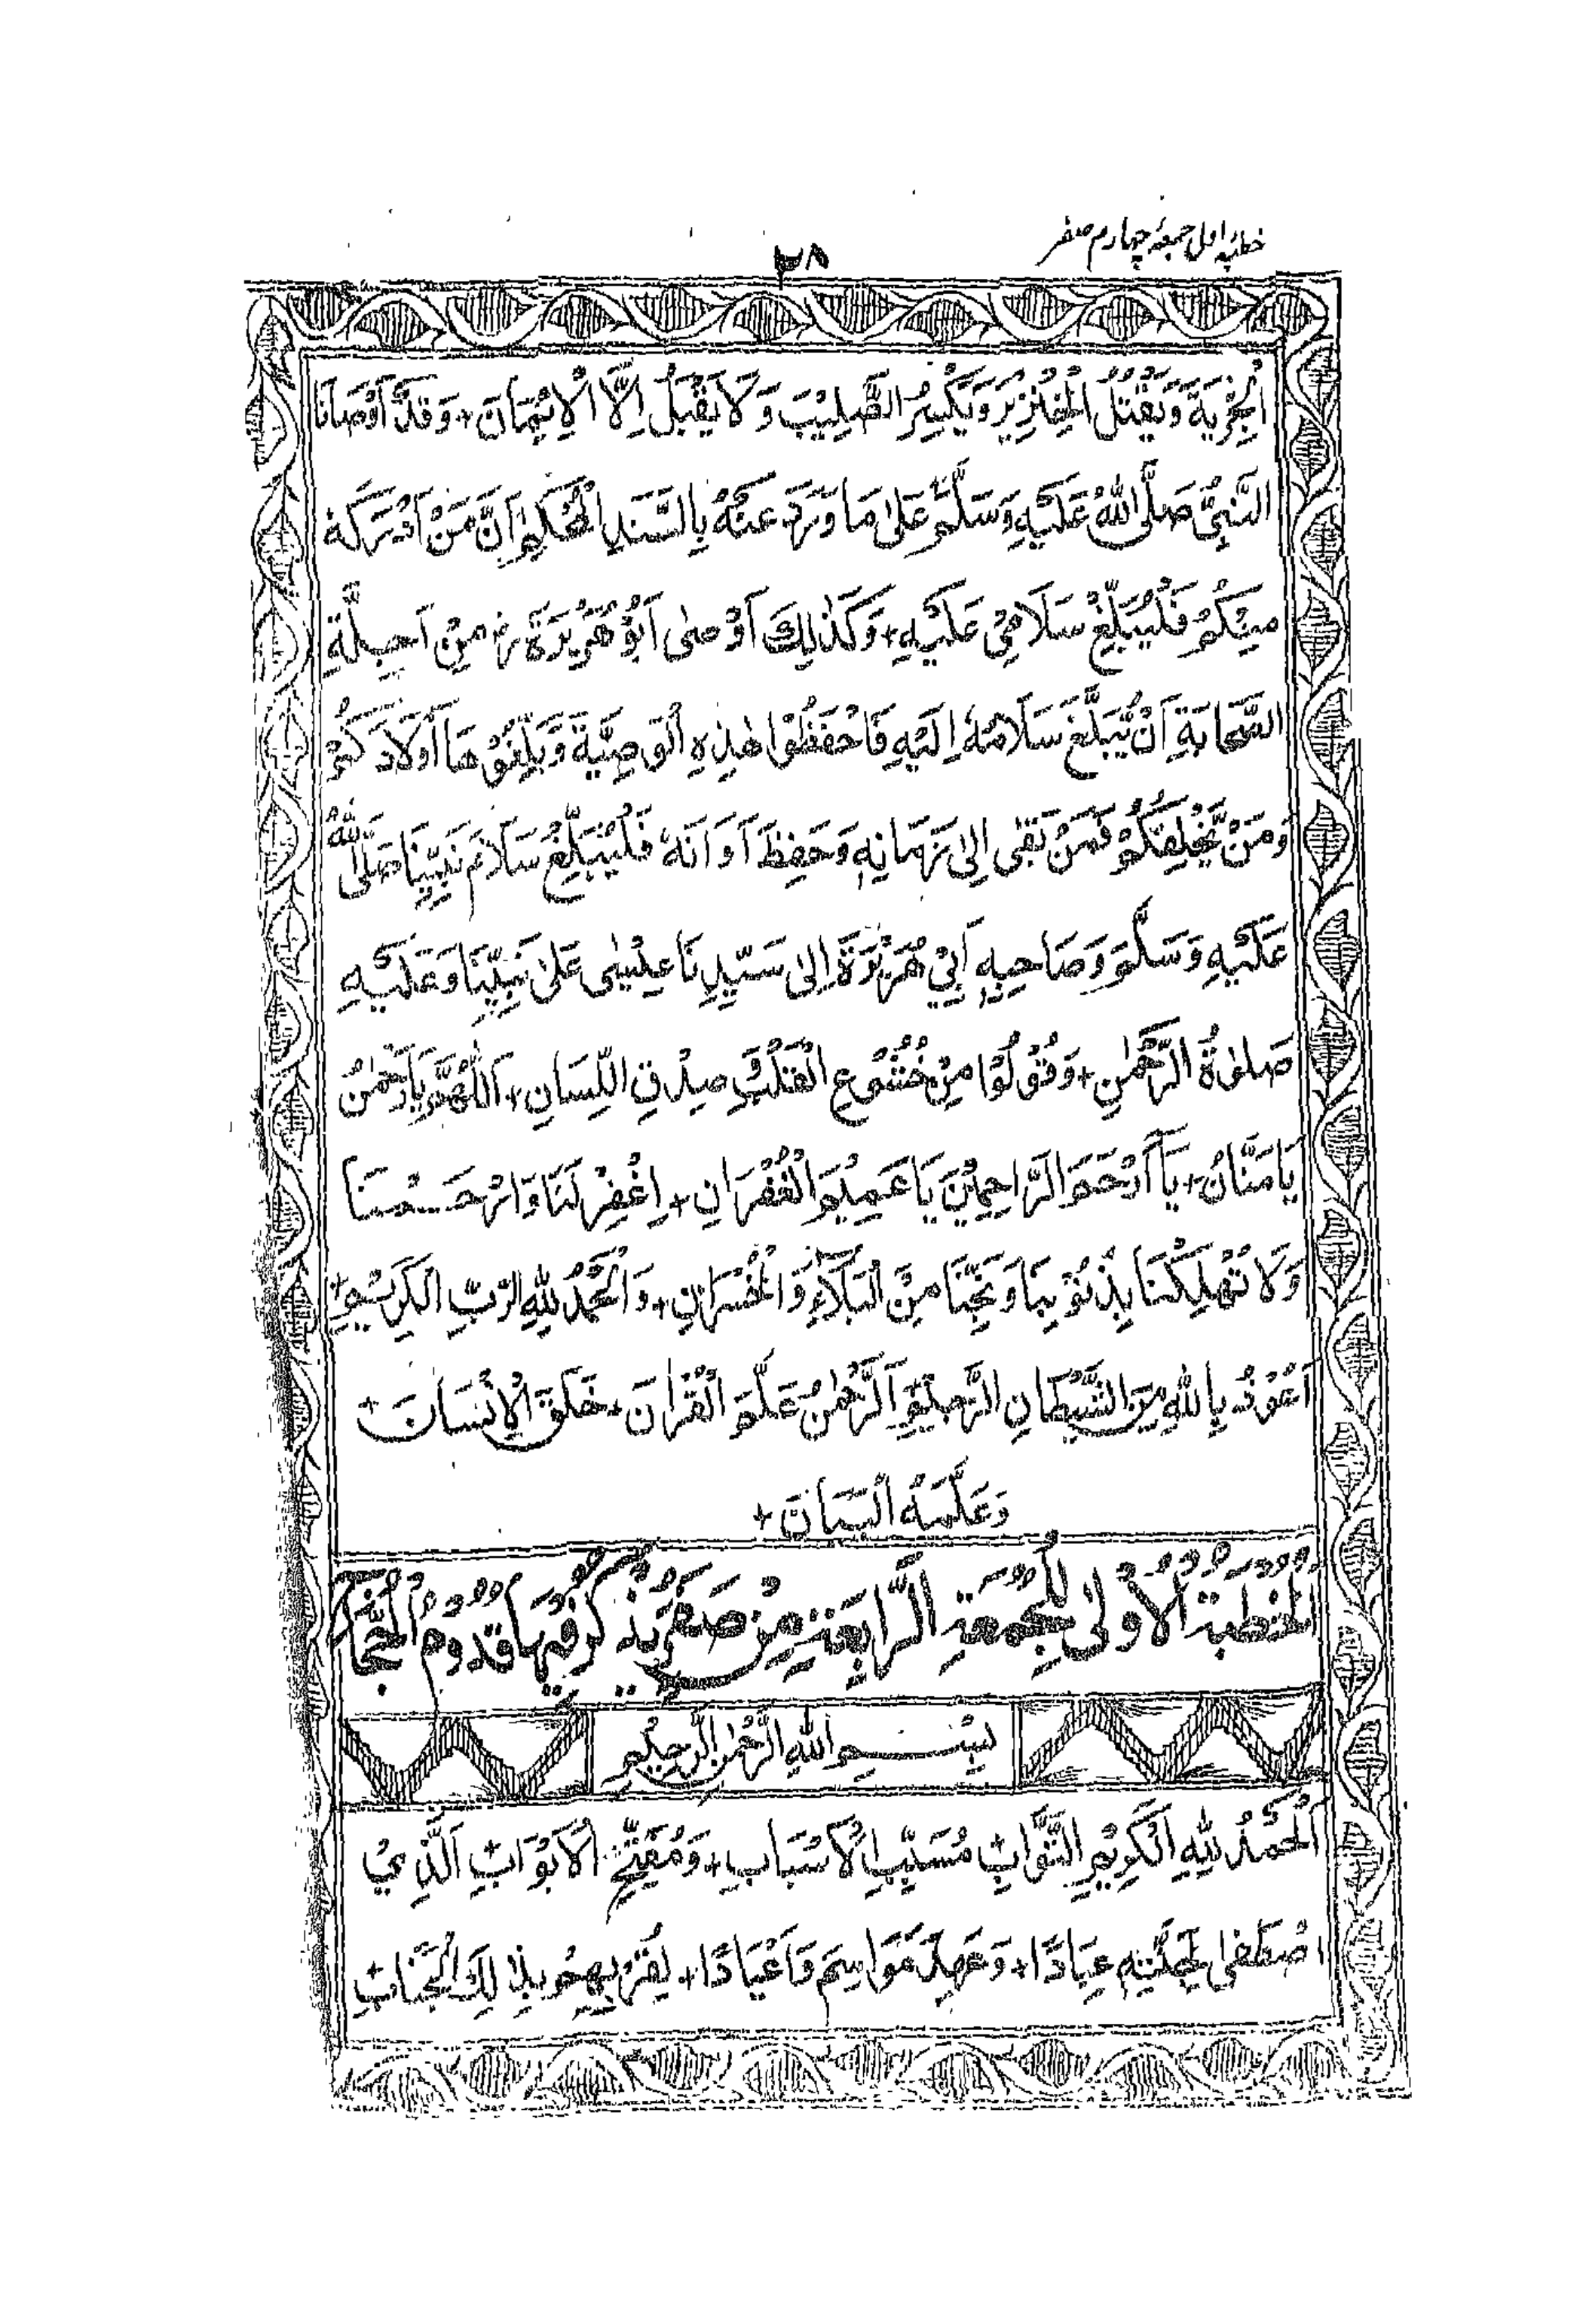 خطبۂ اول جمعۂ چہارم صفر
٢٨
الْجِزْيَةَ وَيَقْتُلُ الْخِنْزِيْرَ وَيَكْسِرُ الصَّلِيْبَ وَلَا يَقْبَلُ اِلَّا الْاِيْمَانَ + وَقَدْ اَوْصَانَا
النَّبِيُّ صَلَّى اللهُ عَلَيْهِ وَسَلَّمَ عَلٰى مَا وَرَدَ عَنْهُ بِالسَّنَدِ الْمُحْكَمِ اَنَّ مَنْ اَدْرَكَهٗ
مِنْكُمْ فَلْيُبَلِّغْ سَلَامِيْ عَلَيْهِ + وَكَذٰلِكَ اَوْصٰى اَبُوْ هُرَيْرَةَ رض مِنْ اَجِلَّةِ
الصَّحَابَةِ اَنْ يُّبَلَّغَ سَلَامُهٗ اِلَيْهِ فَاحْفَظُوْا هٰذِهِ الْوَصِيَّةَ وَبَلِّغُوْهَا اَوْلَادَكُمْ
وَمَنْ يَّخْلُفُكُمْ فَمَنْ بَقٰى اِلٰى زَمَانِهٖ وَحَفِظَ اَوَانَهٗ فَلْيُبَلِّغْ سَلَامَ نَبِيِّنَا صَلَّى اللهُ
عَلَيْهِ وَسَلَّمَ وَصَاحِبِهٖ اَبِيْ هُرَيْرَةَ اِلٰى سَيِّدِنَا عِيْسٰى عَلٰى نَبِيِّنَا وَعَلَيْهِ
صَلٰوةُ الرَّحْمٰنِ + وَقُوْلُوْا مِنْ خُشُوْعِ الْقَلْبِ وَصِدْقِ اللِّسَانِ + اَللّٰهُمَّ يَا رَحْمٰنُ
يَا مَنَّانُ + يَا اَرْحَمَ الرَّاحِمِيْنَ يَا عَمِيْمَ الْغُفْرَانِ + اِغْفِرْ لَنَا وَارْحَمْنَا
وَلَا تُهْلِكْنَا بِذُنُوْبِنَا وَنَجِّنَا مِنَ الْبَلَاءِ وَالْخُسْرَانِ + وَالْحَمْدُ لِلّٰهِ الرَّبِّ الْكَرِيْمِ +
اَعُوْذُ بِاللهِ مِنَ الشَّيْطَانِ الرَّجِيْمِ اَلرَّحْمٰنُ عَلَّمَ الْقُرْاٰنَ + خَلَقَ الْاِنْسَانَ +
وَعَلَّمَهُ الْبَيَانَ +
اَلْخُطْبَةُ الْاُوْلٰى لِلْجُمُعَةِ الرَّابِعَةِ مِنْ صَفَرَ يُذْكَرُ فِيْهَا قُدُوْمُ الْحُجَّاجِ
بِسْمِ اللهِ الرَّحْمٰنِ الرَّحِيْمِ
اَلْحَمْدُ لِلّٰهِ الْكَرِيْمِ التَّوَّابِ مُسَبِّبِ الْاَسْبَابِ + وَمُفَتِّحِ الْاَبْوَابِ الَّذِيْ
اصْطَفٰى لِمَحَبَّتِهٖ عِبَادًا + وَعَهِدَ مَوَاسِمَ وَاَعْيَادًا + لِيُقَرِّبَهُمْ بِذٰلِكَ الْجَنَّاتِ